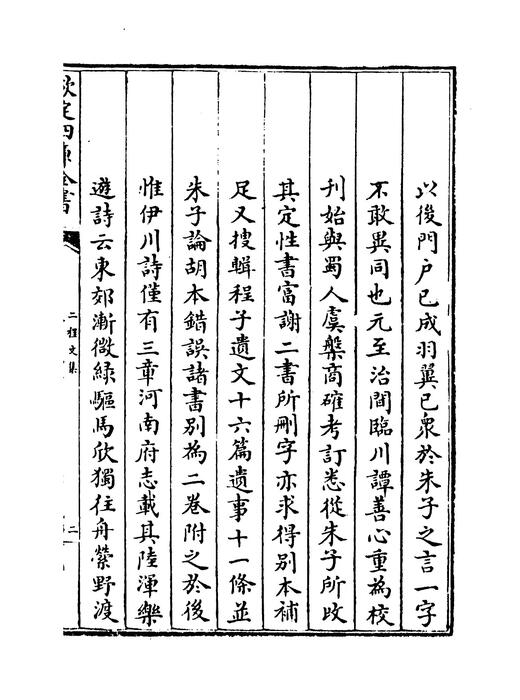 以後門户已成羽翼已衆於朱子之言一字
不敢異同也元至治間臨川譚善心重為校
刋始與蜀人虞槃商確考訂悉從朱子所改
其定性書富謝二書所刪字亦求得别本補
足又搜輯程子遺文十六篇遺事十一條並
朱子論胡本錯誤諸書别為二卷附之於後
惟伊川詩僅有三章河南府志載其陸渾樂
遊詩云東郊漸微緑驅馬欣獨徃舟縈野渡
欽定四庫全書
二程文集
二